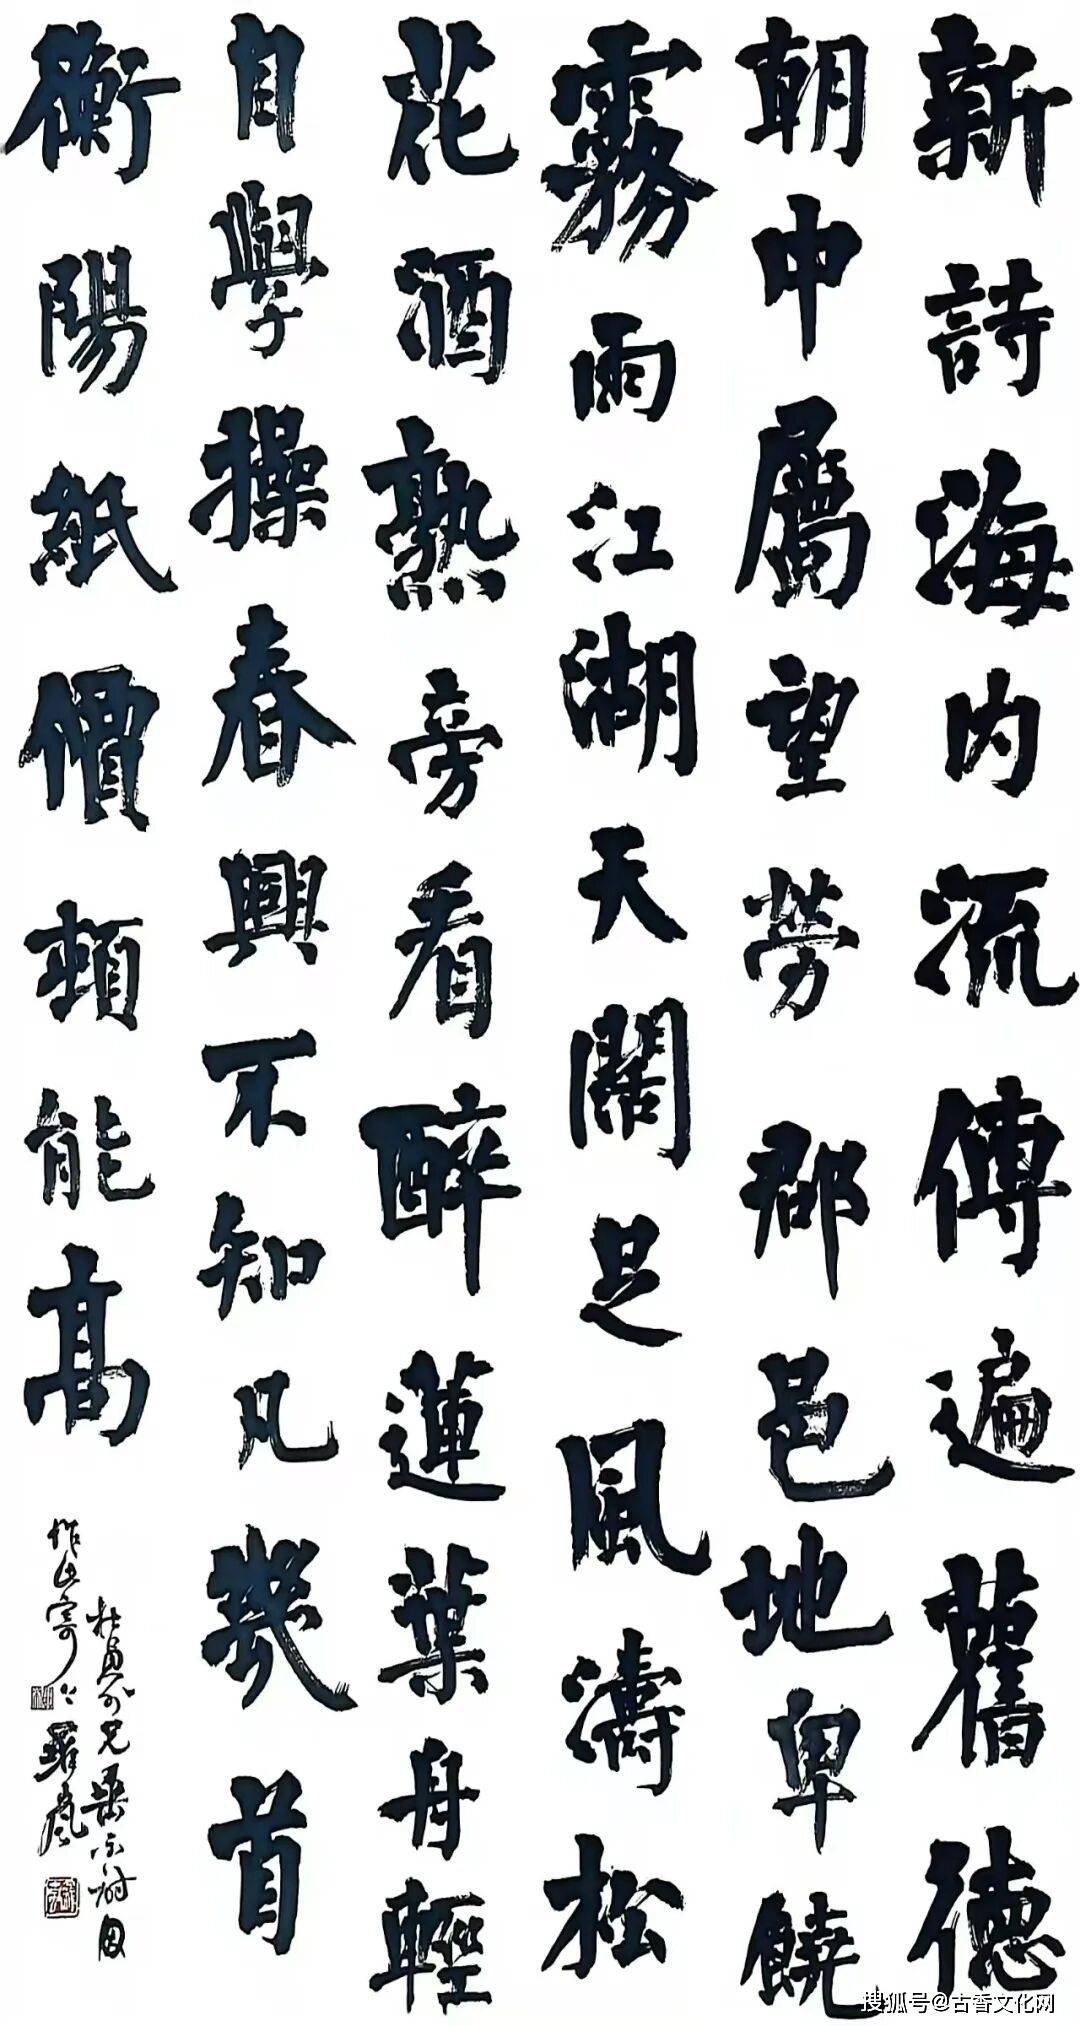 新詩海内流傳遍舊德
朝中屬望勞郡邑地卑饒
霧雨江湖天闊足風濤松
花酒熟旁看醉蓮葉舟輕
自學操春興不知凡幾首
衡陽紙價頓能高
杜員外兄垂示詩因
作此寄上
搜狐号@古香文化网